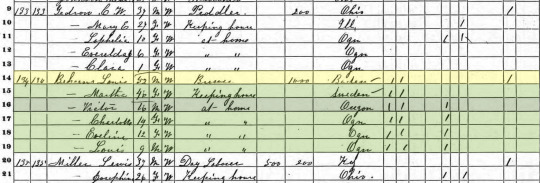 9 133 133 Gedrow C. W. 37 M W Peddler 200 Ohio 1
10 — Mary E 27 F W Keeping house Ill 1
11 — Sephelia 10 F W at home Ogn 1 1
12 — 6 F W " " Ogn
13 — Clara 1 F W Ogn
14 134 134 Behrens Louis 52 M W 1000 1 1 1
15 — Martha 48 F W Keeping house Sweden 1 1
16 — Victor 16 M W at home Oregon 1 1 1
17 — Charlotte 14 F W " " Ogn 1 1 1
18 — Eveline 12 F W " " Ogn 1 1 1
19 — Louis 9 M W " " Ogn 1 1 1
20 135 135 Miller Lewis 37 M W Day Laborer 500 200 Ky 1
21 — Josephin 24 F W Keeping house Ohio 1